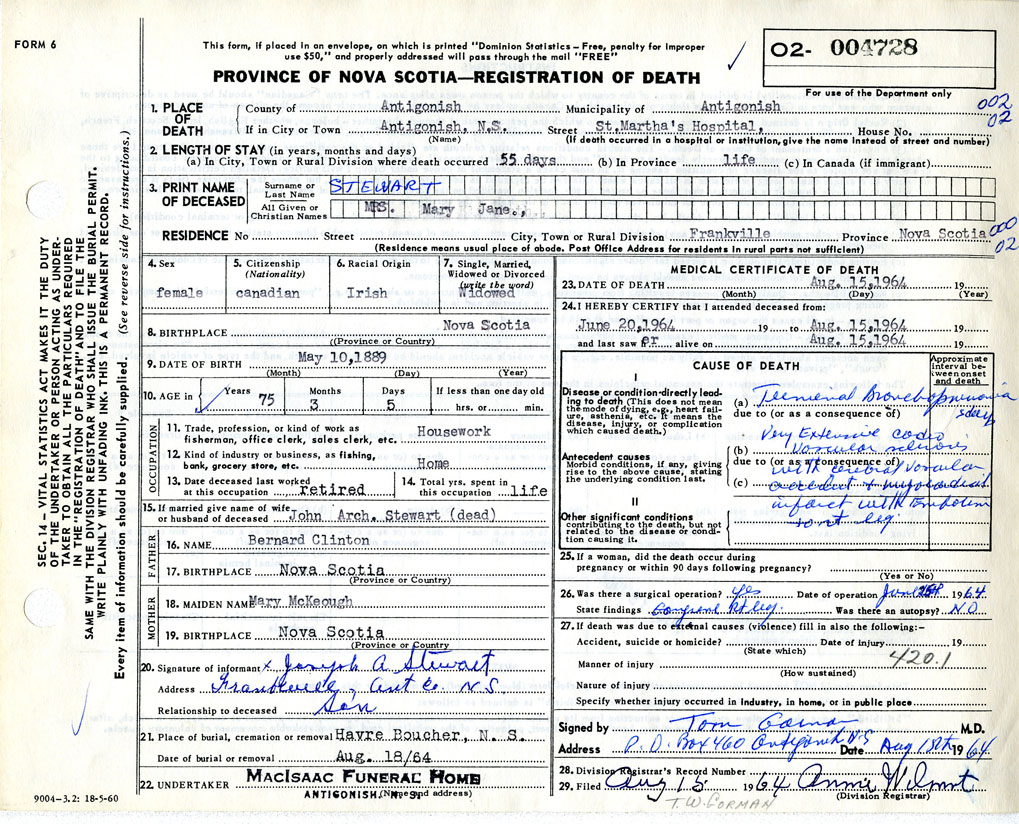 FORM 6
This form, if placed in an envelope, on which is printed "Dominion Statistics – Free, penalty for improper
use $50," and properly addressed will pass through the mail "FREE"
O2- 004728
For use of the Department only
PROVINCE OF NOVA SCOTIA—REGISTRATION OF DEATH
002
02
1. PLACE OF DEATH
County of Antigonish Municipality of Antigonish
If in City or Town Antigonish, N.S. Street St.Martha's Hospital, House No.
(Name) (If death occurred in a hospital or institution, give the name instead of street and number)
2. LENGTH OF STAY (in years, months and days)
(a) In City, Town or Rural Division where death occurred 55 days (b) In Province life (c) In Canada (if immigrant)
3. PRINT NAME OF DECEASED
Surname or Last Name STEWART
All Given or Christian Names MRS. Mary Jane.,
000
02
RESIDENCE No Street City, Town or Rural Division Frankville Province Nova Scotia
(Residence means usual place of abode. Post Office Address for residents in rural parts not sufficient)
4. Sex female
5. Citizenship (Nationality) canadian
6. Racial Origin Irish
7. Single, Married, Widowed or Divorced (write the word) Widowed
8. BIRTHPLACE Nova Scotia
(Province or Country)
9. DATE OF BIRTH May 10,1889
(Month) (Day) (Year)
10. AGE in Years 75 Months 3 Days 5 If less than one day old hrs. or min.
OCCUPATION
11. Trade, profession, or kind of work as
fisherman, office clerk, sales clerk, etc. Housework
12. Kind of industry or business, as fishing,
bank, grocery store, etc. Home
13. Date deceased last worked
at this occupation retired
14. Total yrs. spent in
this occupation life
15. If married give name of wife
or husband of deceased John Arch. Stewart (dead)
FATHER
16. NAME Bernard Clinton
17. BIRTHPLACE Nova Scotia
(Province or Country)
MOTHER
18. MAIDEN NAME Mary McKeough
19. BIRTHPLACE Nova Scotia
(Province or Country)
20. Signature of informant x Joseph A Stewart
Address Frankville, Ant Co. N.S
Relationship to deceased Son
21. Place of burial, cremation or removal Havre Boucher, N. S.
Date of burial or removal Aug. 18/64
22. UNDERTAKER MacIsaac Funeral Home
ANTIGONISH, N. S.
(Name and address)
MEDICAL CERTIFICATE OF DEATH
23. DATE OF DEATH Aug. 15,1964 19
(Month) (Day) (Year)
24. I HEREBY CERTIFY that I attended deceased from:
June 20,1964 19 to Aug. 15,1964 19
and last saw er alive on Aug. 15,1964 19
CAUSE OF DEATH
Approximate interval between onset and death
I
Disease or condition directly leading to death (This does not mean the mode of dying, e.g., heart failure, asthenia, etc. It means the disease, injury, or complication which caused death.)
(a) Terminal Bronchopneumonia
due to (or as a consequence of)
Antecedent causes
Morbid conditions, if any, giving rise to the above cause, stating the underlying condition last.
Very Extensive
(b) vascular
due to (or as a consequence of)
with vascular
(c) accident + myocardial
infarct with Embolism
leg
II
Other significant conditions
contributing to the death, but not related to the disease or condition causing it.
25. If a woman, did the death occur during
pregnancy or within 90 days following pregnancy?
(Yes or No)
26. Was there a surgical operation? yes Date of operation June 1964
State findings Rt leg. Was there an autopsy? NO
27. If death was due to external causes (violence) fill in also the following:-
Accident, suicide or homicide? Date of injury 19
(State which)
Manner of injury 420.1
(How sustained)
Nature of injury
Specify whether injury occurred in industry, in home, or in public place
Signed by Tom Gorman M.D.
Address P.O. Box 460 Antigonish N.S Date Aug 15th 1964
28. Division Registrar's Record Number
29. Filed Aug 15 1964
(Division Registrar)
T.W. GORMAN
SEC. 14 – VITAL STATISTICS ACT MAKES IT THE DUTY
OF THE UNDERTAKER OR PERSON ACTING AS UNDER-
TAKER TO OBTAIN ALL THE PARTICULARS REQUIRED
IN THE "REGISTRATION OF DEATH" AND TO FILE THE
SAME WITH THE DIVISION REGISTRAR WHO SHALL ISSUE THE BURIAL PERMIT.
WRITE PLAINLY WITH UNFADING INK. THIS IS A PERMANENT RECORD.
Every item of information should be carefully supplied. (See reverse side for instructions.)
9004-3.2: 18-5-60